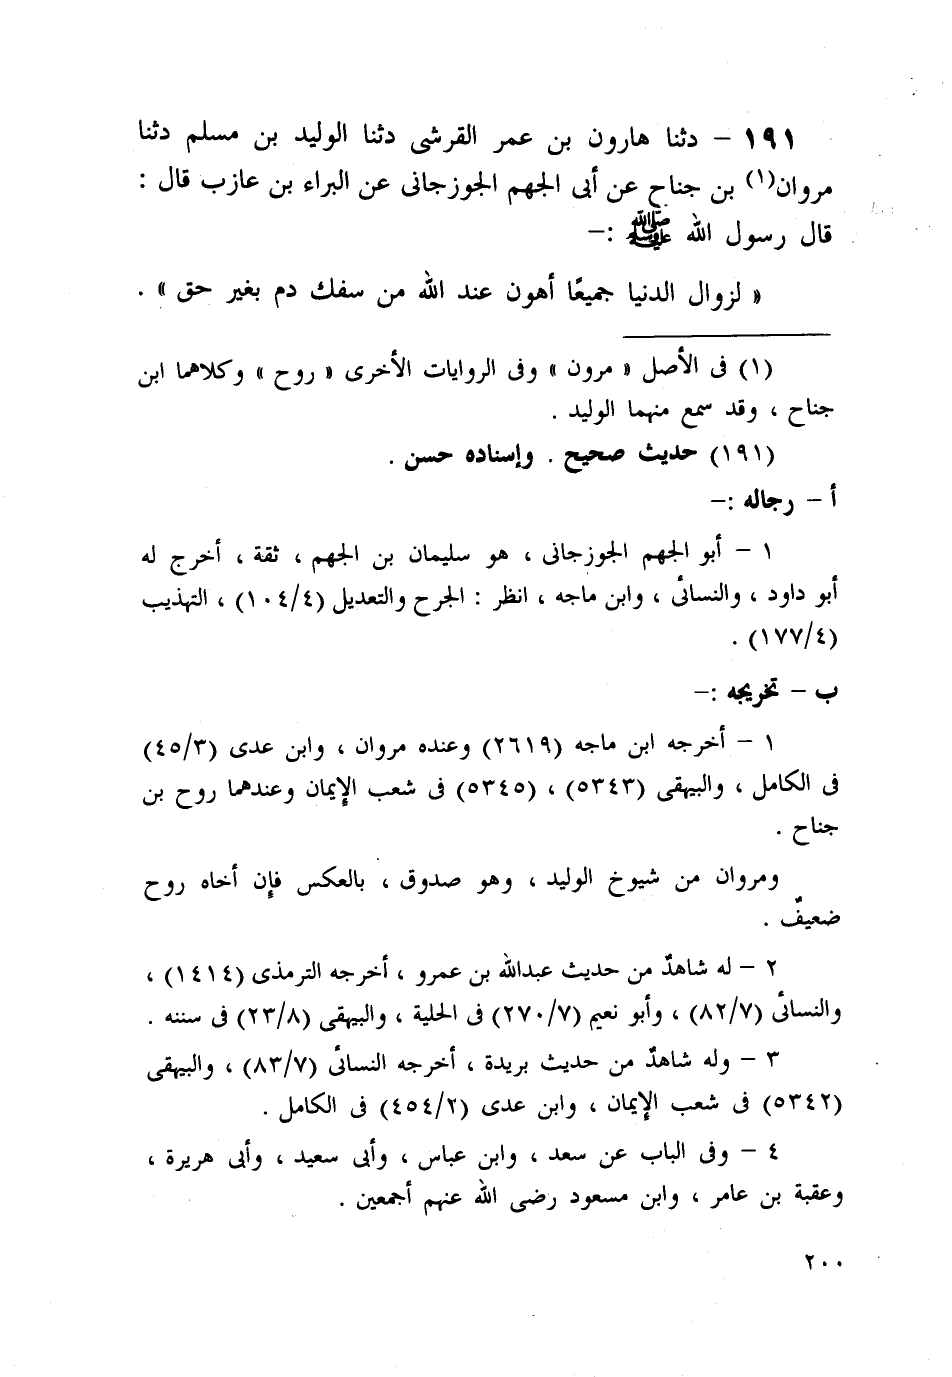 ١٩١ – دثنا هارون بن عمر القرشى دثنا الوليد بن مسلم دثنا
مروان(١) بن جناح عن أبى الجهم الجوزجانى عن البراء بن عازب قال :
قال رسول الله ﷺ :–
« لزوال الدنيا جميعًا أهون عند الله من سفك دم بغير حق » .
(١) فى الأصل « مرون » وفى الروايات الأخرى « روح » وكلاهما ابن
جناح ، وقد سمع منهما الوليد .
(١٩١) حديث صحيح . وإسناده حسن .
أ – رجاله :–
١ – أبو الجهم الجوزجانى ، هو سليمان بن الجهم ، ثقة ، أخرج له
أبو داود ، والنسائى ، وابن ماجه ، انظر : الجرح والتعديل (١٠٤/٤) ، التهذيب
(١٧٧/٤) .
ب – تخريجه :–
١ – أخرجه ابن ماجه (٢٦١٩) وعنده مروان ، وابن عدى (٤٥/٣)
فى الكامل ، والبيهقى (٥٣٤٣) ، (٥٣٤٥) فى شعب الإيمان وعندهما روح بن
جناح .
ومروان من شيوخ الوليد ، وهو صدوق ، بالعكس فإن أخاه روح
ضعيفٌ .
٢ – له شاهدٌ من حديث عبدالله بن عمرو ، أخرجه الترمذى (١٤١٤) ،
والنسائى (٨٢/٧) ، وأبو نعيم (٢٧٠/٧) فى الحلية ، والبيهقى (٢٣/٨) فى سننه .
٣ – وله شاهدٌ من حديث بريدة ، أخرجه النسائى (٨٣/٧) ، والبيهقى
(٥٣٤٢) فى شعب الإيمان ، وابن عدى (٤٥٤/٢) فى الكامل .
٤ – وفى الباب عن سعد ، وابن عباس ، وأبى سعيد ، وأبى هريرة ،
وعقبة بن عامر ، وابن مسعود رضى الله عنهم أجمعين .
٢٠٠